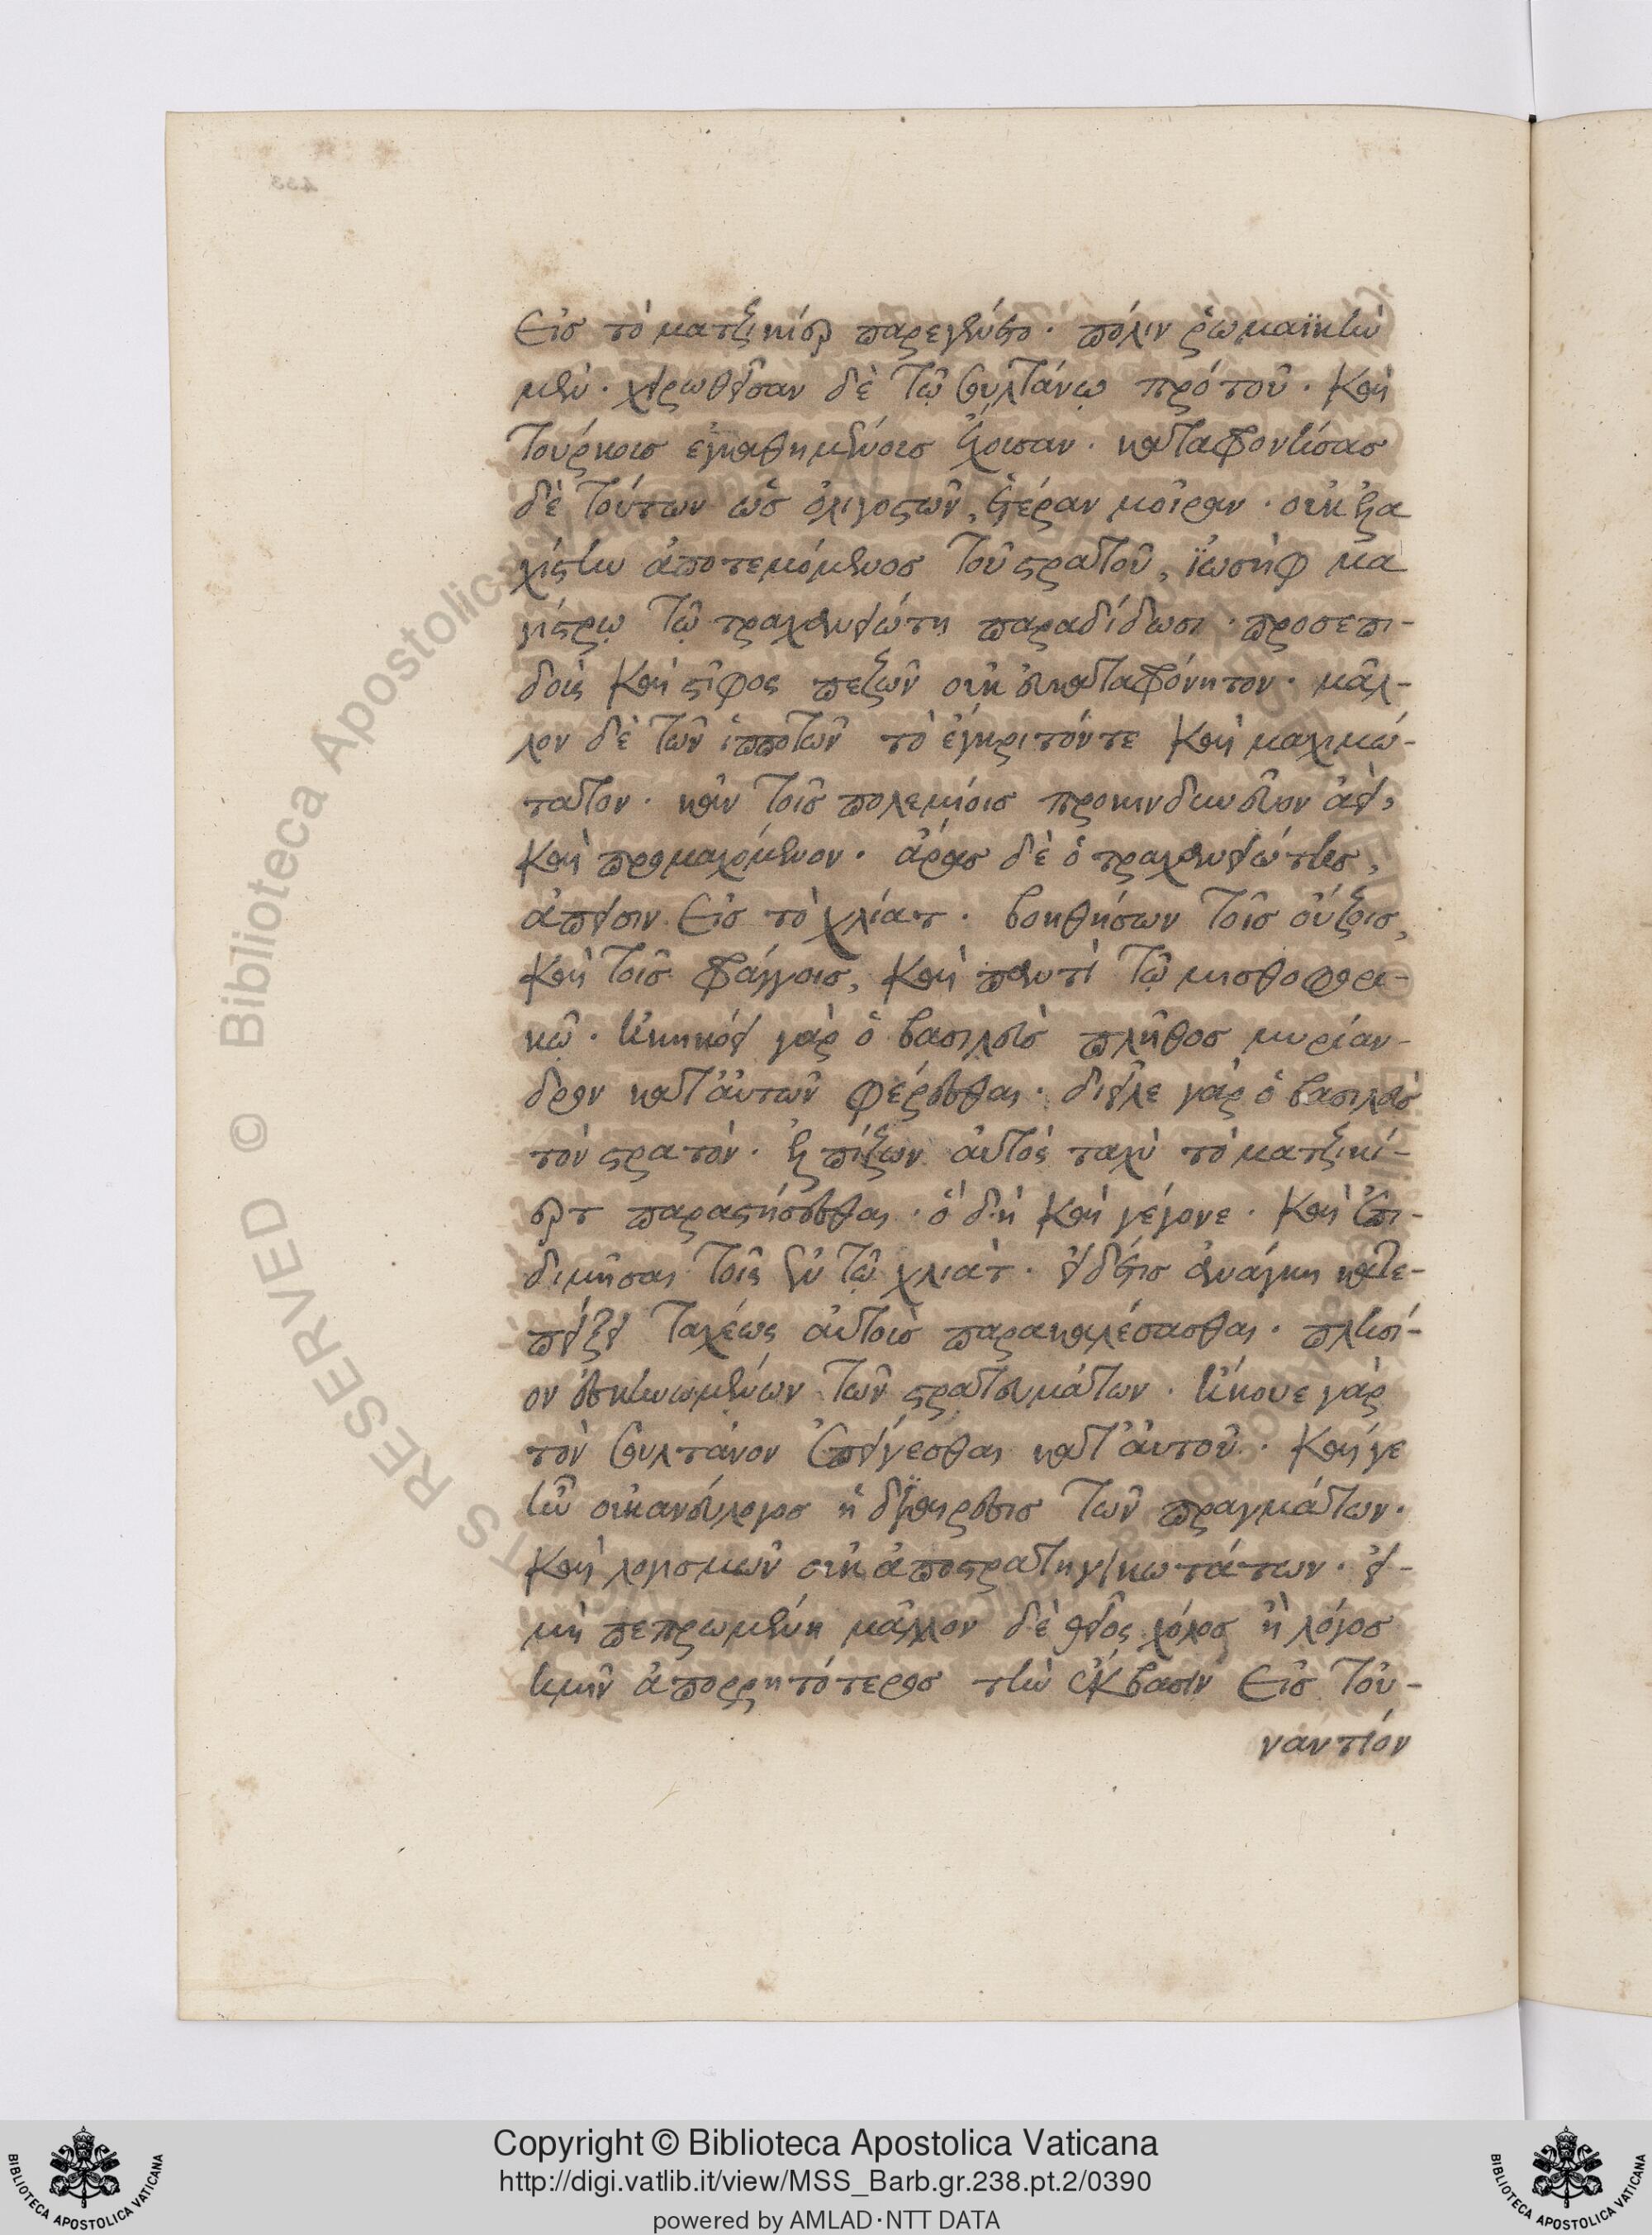 Εἰς τὸ ματζικίερ παρεγένετο· πόλιν ῥωμαϊκὴν
μέν· χειρωθεῖσαν δὲ τῷ σουλτάνῳ πρὸ τοῦ· καὶ
τούρκοις ἐγκαθημένοις ἔχουσαν· καταφρονήσας
δὲ τούτων ὡς ὀλιγοστῶν, ἑτέραν μοῖραν· οὐκ ἐλα
χίστην ἀποτεμόμενος τοῦ στρατοῦ, ἰωσὴφ μα
γίστρῳ τῷ τραχανειώτῃ παραδίδωσι· προσεπι-
δοὺς καὶ στῖφος πεζῶν οὐκ εὐκαταφρόνητον· μᾶλ-
λον δὲ τῶν ἱπποτῶν τὸ ἔγκριτόν τε καὶ μαχιμώ-
τατον· κἂν τοῖς πολεμίοις προκινδυνεῦον ἀεί,
καὶ προμαχόμενον· ἄρας δὲ ὁ τραχανειώτης,
ἄπεισιν εἰς τὸ χλίατ· βοηθήσων τοῖς οὔζοις,
καὶ τοῖς φράγγοις, καὶ παντὶ τῷ μισθοφορι-
κῷ· ἠκηκόει γὰρ ὁ βασιλεὺς πλῆθος μυρίαν-
δρον κατ' αὐτῶν φέρεσθαι· διεῖλε γὰρ ὁ βασιλεὺς
τὸν στρατόν· ἐλπίζων αὐτὸς ταχὺ τὸ ματζικί-
ερτ παραστήσεσθαι· ὃ δὴ καὶ γέγονε· καὶ ἐπι-
δημῆσαι τοῖς ἐν τῷ χλιάτ· εἰ δέ τις ἀνάγκη κατε-
πείξει ταχέως αὐτοὺς παρακαλέσασθαι· πλησί-
ον ἐσκηνωμένων τῶν στρατευμάτων· ἤκουε γὰρ
τὸν σουλτάνον ἐπείγεσθαι κατ' αὐτοῦ· καί γε
ἦν οὐκ ἀνεύλογος ἡ διαίρεσις τῶν πραγμάτων·
καὶ λογισμῶν οὐκ ἀποστρατηγικωτάτων· εἰ-
μὴ πεπρωμένη μᾶλλον δὲ θεῖος χόλος ἢ λόγος
ἡμῖν ἀπορρητότερος τὴν ἔκβασιν εἰς τοὐ-
ναντίον
453
RESERVED © Biblioteca Apostolica Vaticana
Copyright © Biblioteca Apostolica Vaticana
http://digi.vatlib.it/view/MSS_Barb.gr.238.pt.2/0390
powered by AMLAD·NTT DATA
BIBLIOTECA APOSTOLICA VATICANA
BIBLIOTECA APOSTOLICA VATICANA